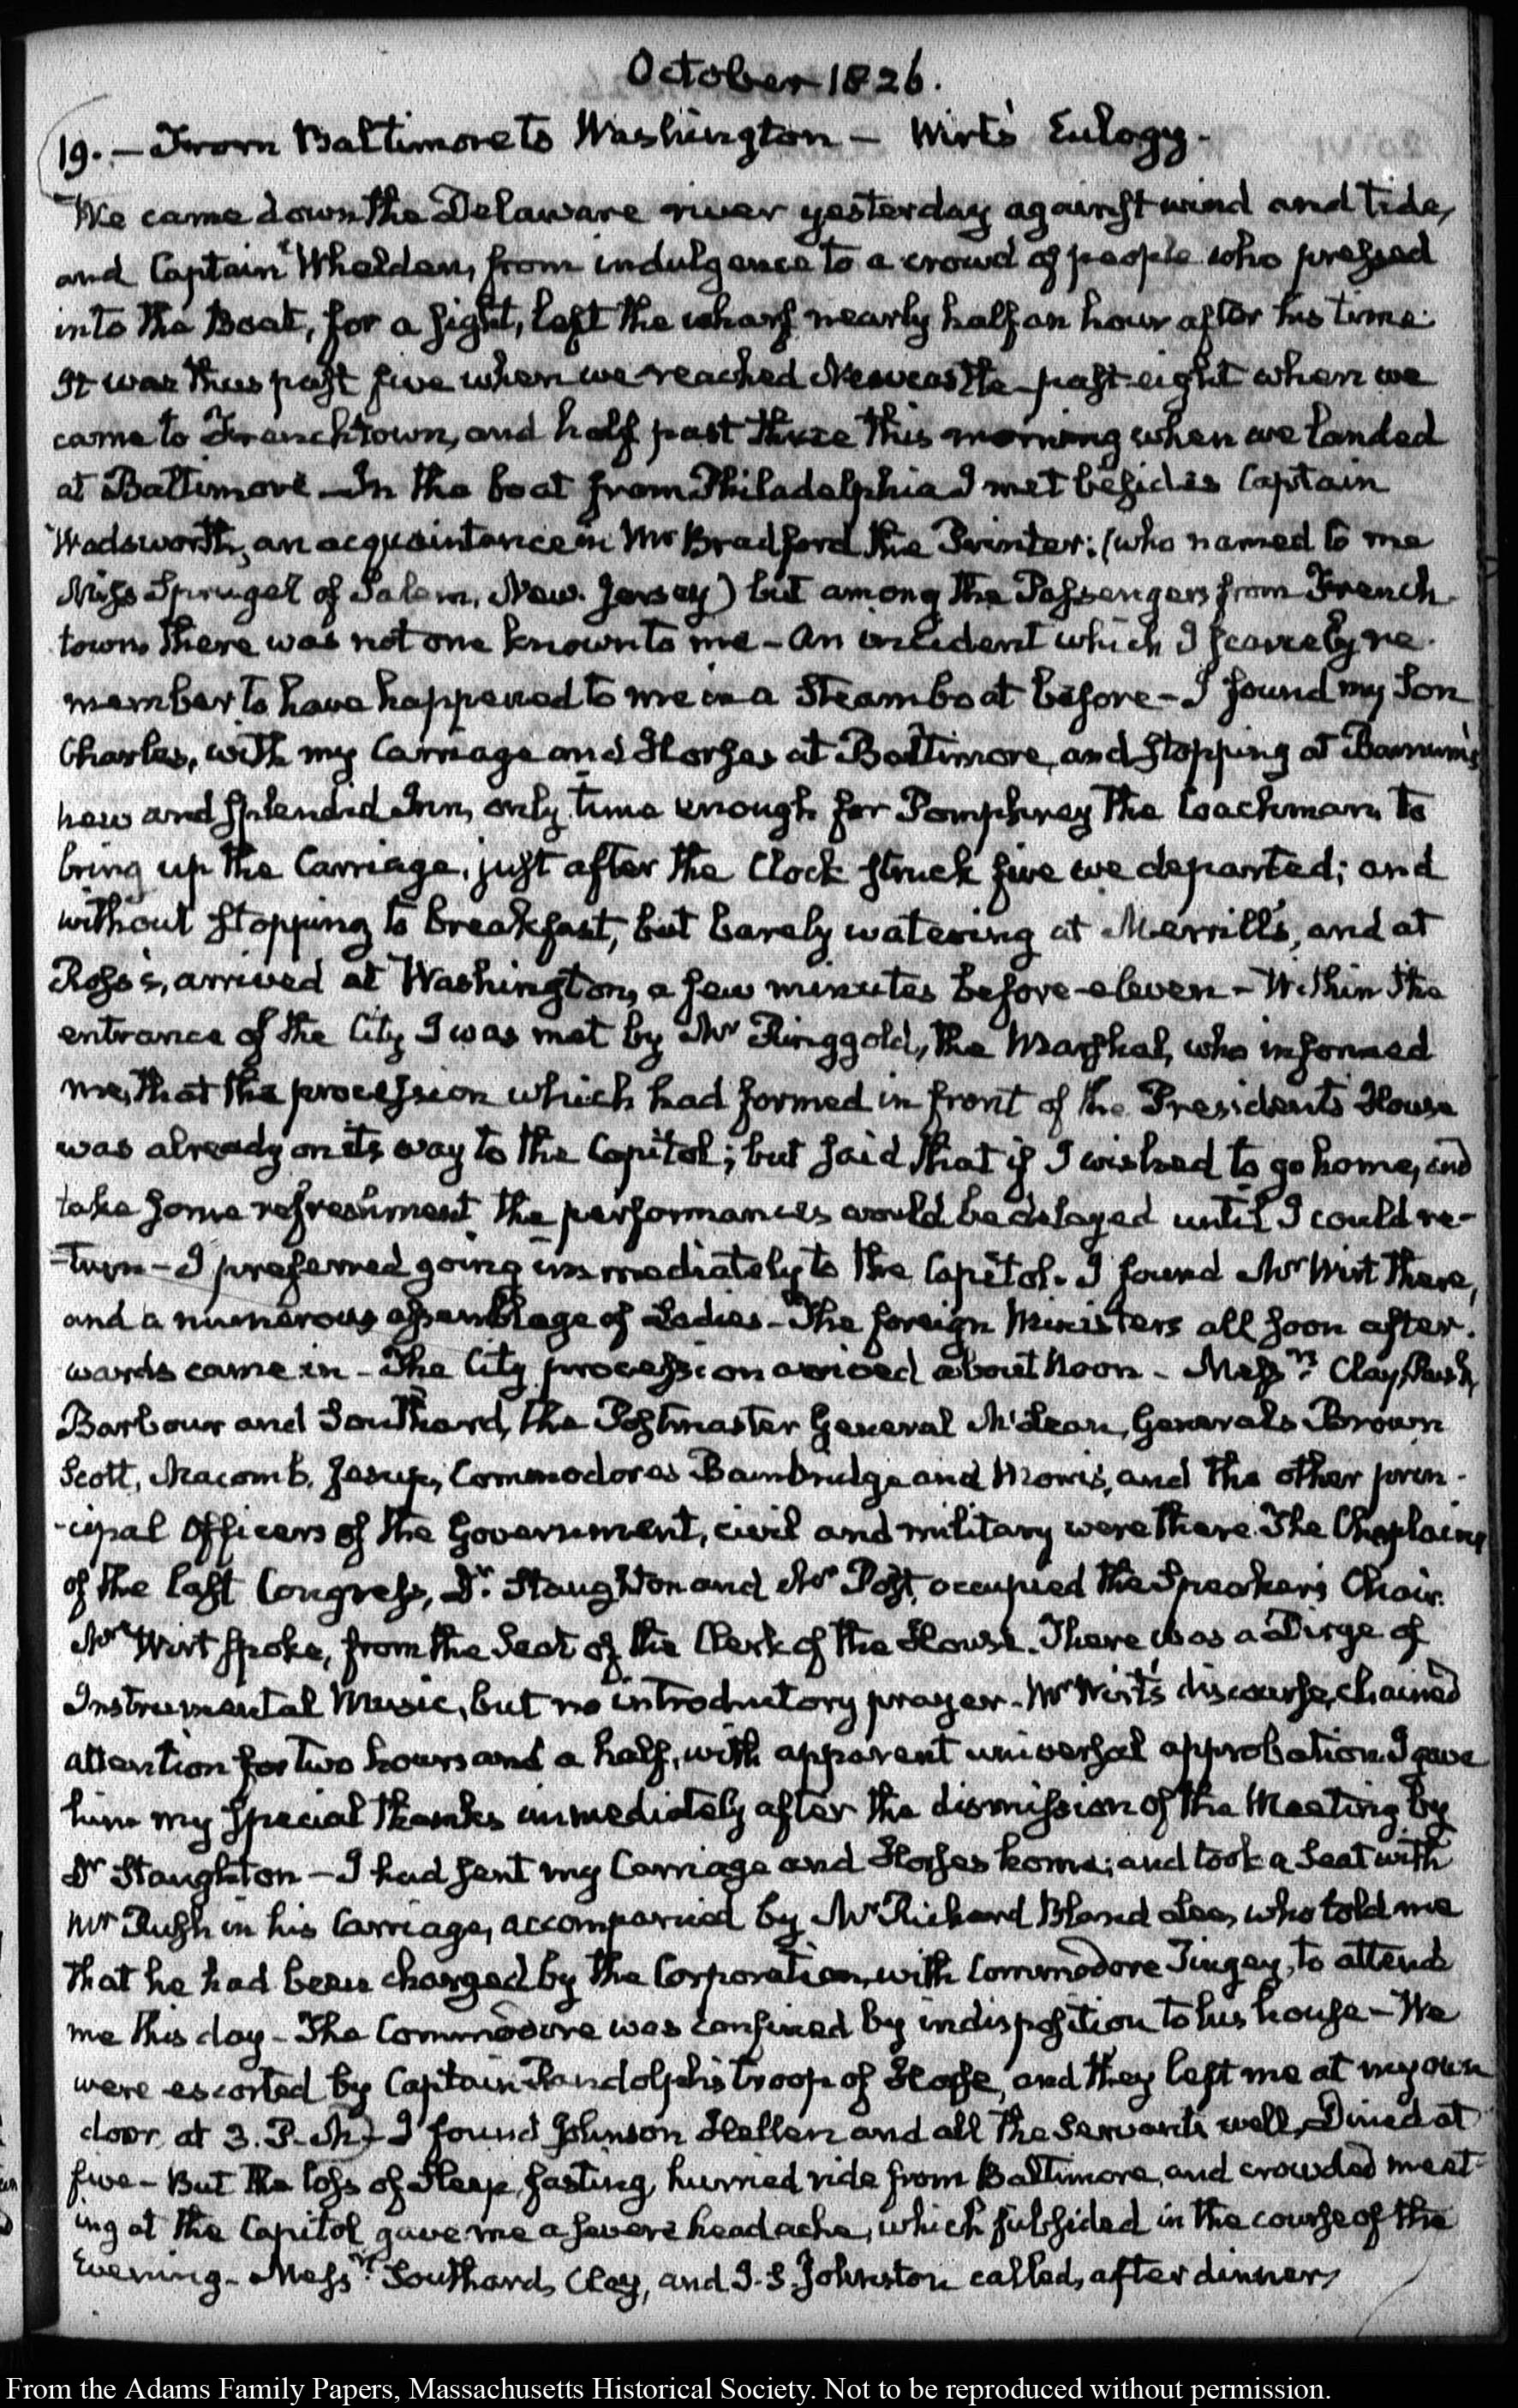 October 1826.
19. — From Baltimore to Washington — Wirt's Eulogy.
We came down the Delaware river yesterday against wind and tide,
and Captain Whelden, from indulgence to a crowd of people who pressed
into the Boat, for a sight, left the wharf nearly half an hour after his time.
It was thus past five when we reached Newcastle — past eight when we
came to Frenchtown, and half past three this morning when we landed
at Baltimore — In the boat from Philadelphia I met besides Captain
Wadsworth, an acquaintance in Mr Bradford the Printer; (who named to me
Miss of Salem, New-Jersey) but among the Passengers from French-
town there was not one known to me — An incident which I scarcely re-
member to have happened to me in a Steamboat before — I found my Son
Charles, with my Carriage and Horses at Baltimore, and stopping at Barnum's
new and splendid Inn, only time enough for Pomphrey the Coachman to
bring up the Carriage, just after the Clock struck five we departed; and
without stopping to breakfast, but barely watering at Merrill's, and at
Ross's, arrived at Washington, a few minutes before eleven — Within the
entrance of the City I was met by Mr Ringgold, the Marshal, who informed
me, that the procession which had formed in front of the President's House
was already on its way to the Capitol; but said that if I wished to go home, and
take some refreshment the performances would be delayed until I could re-
-turn — I preferred going immediately to the Capitol. I found Mr Wirt there,
and a numerous assemblage of Ladies — The foreign Ministers all soon after-
wards came in — The City procession arrived about Noon — Messrs. Clay, Rush,
Barbour and Southard, the Postmaster General McLean, Generals Brown
Scott, Macomb, Jesup, Commodores Bainbridge and Morris, and the other prin-
-cipal Officers of the Government, civil and military were there. The Chaplains
of the last Congress, Dr. Staughton and Mr Post, occupied the Speaker's Chair.
Mr Wirt spoke, from the Seat of the Clerk of the House. There was a Dirge of
Instrumental Music, but no introductory prayer. Mr Wirt's discourse, chained
attention for two hours and a half, with apparent universal approbation. I gave
him my special thanks immediately after the dismission of the Meeting by
Dr Staughton — I had sent my Carriage and Horses home; and took a Seat with
Mr Rush in his Carriage, accompanied by Mr Richard Bland Lee, who told me
that he had been charged by the Corporation, with Commodore Tingey, to attend
me this day — The Commodore was confined by indisposition to his house — We
were escorted by Captain Randolph's troop of Horse, and they left me at my own
door, at 3. P.M. I found Johnson Hellen and all the Servants well, Dined at
five — But the loss of Sleep, fasting, hurried ride from Baltimore, and crowded meet-
ing at the Capitol gave me a severe head ache, which subsided in the course of the
Evening — Messrs. Southard, Clay, and J. S. Johnston called, after dinner,
From the Adams Family Papers, Massachusetts Historical Society. Not to be reproduced without permission.